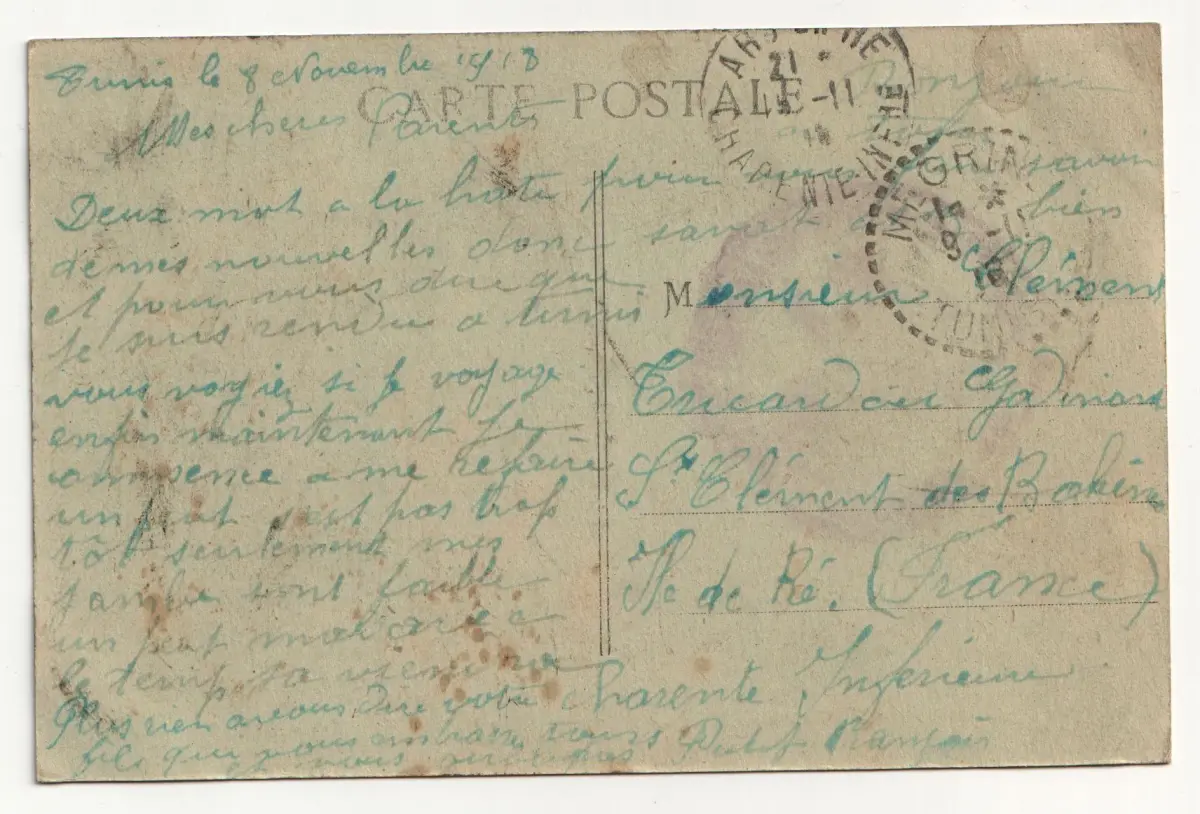 Tunis le 8 Novembre 1918
CARTE POSTALE
Mes chères Parents
Bonjour
Deux mot a la hate pour vous faire savoir
de mes nouvelles donc savat bien
et pour vous dire que
je suis rendu a tunis
vous voyiez si je voyage
enfin maintenant je
commence a me refaire
un peut s'est pas trop
tôt seulement mes
jambe sont faible
un peut mai avec
le temp sa viendra
Plus rien a vous dire votre
fils qui vous embrasse tours
ARS EN RE
21
18 -11
18
CHARENTE INFRE
MEGRINE
TUNISIE
Monsieur Clément
St Clément des Baleine
Ile de Ré. (France)
Charente Inferieure